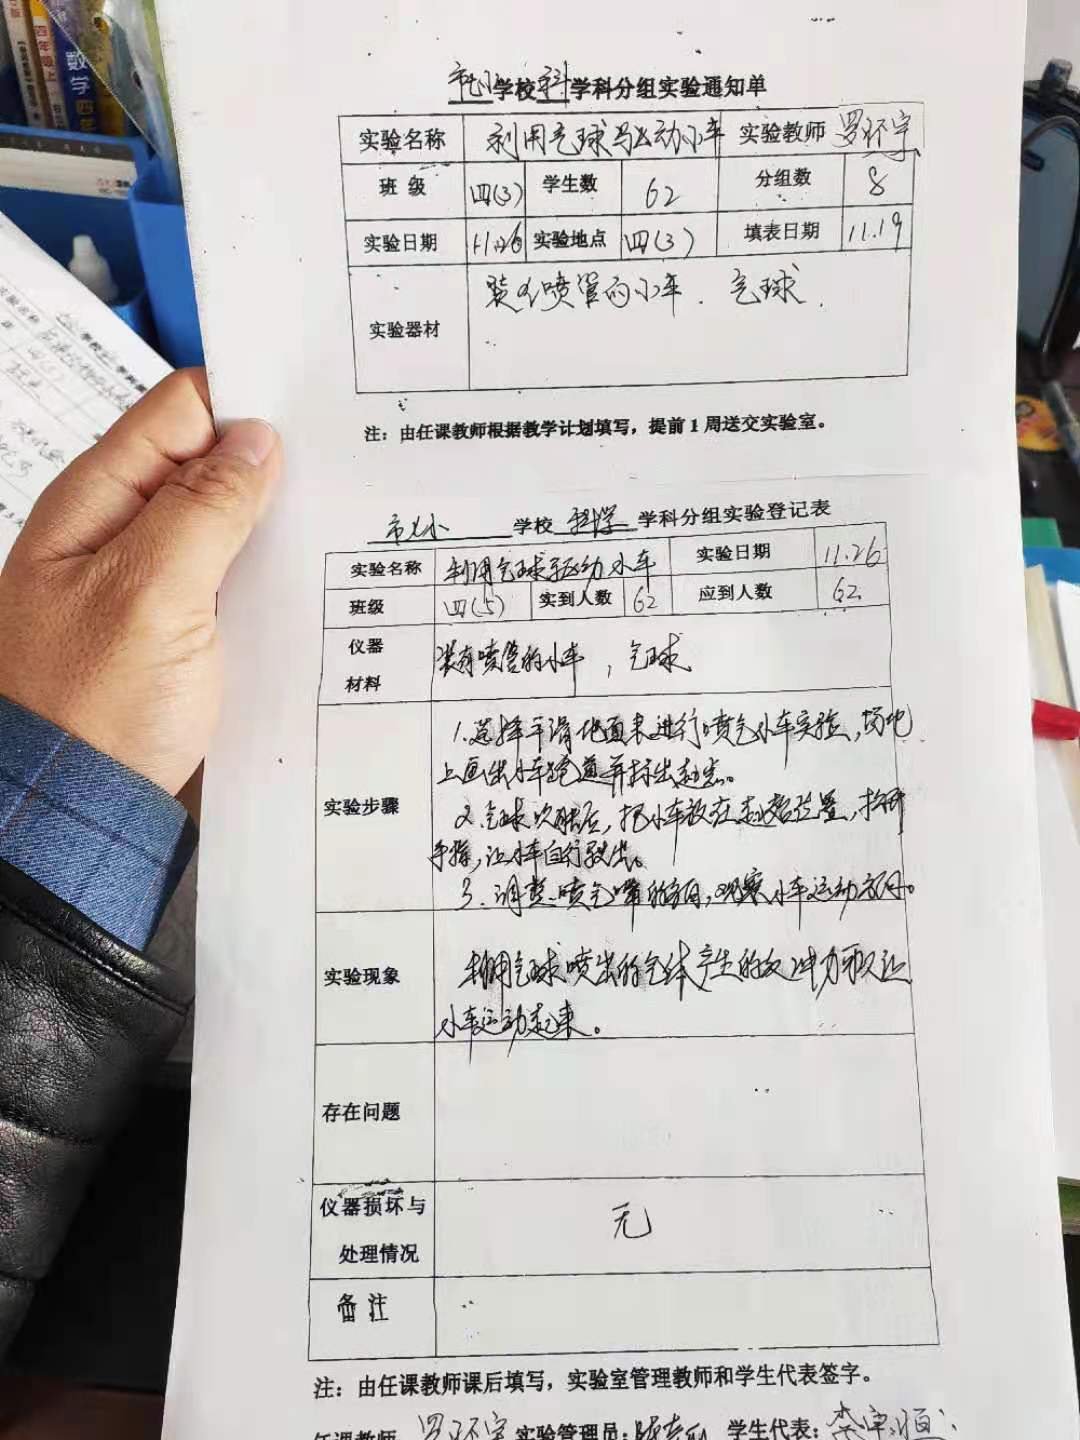 数学
四年级上
学校 科 学科分组实验通知单
实验名称 利用气球驱动小车 实验教师 罗环宇
班 级 四(3) 学生数 62 分组数 8
实验日期 11.26 实验地点 四(3) 填表日期 11.19
实验器材 装有喷管的小车 . 气球.
注：由任课教师根据教学计划填写，提前 1 周送交实验室。
学校 科学 学科分组实验登记表
实验名称 利用气球驱动小车 实验日期 11.26
班级 实到人数 62 应到人数 62
仪器材料 装有喷管的小车 ，气球
实验步骤 1.选择平滑地面来进行喷气小车实验，场地
上画出小车跑道并标出起点。
2.气球吹胀后，把小车放在起始位置，松开
手指，让小车自行驶出。
3.调整喷气嘴的方向，观察小车运动方向。
实验现象 利用气球喷出的气体产生的反冲力可以让
小车运动起来。
存在问题
仪器损坏与处理情况 无
备 注
注：由任课教师课后填写，实验室管理教师和学生代表签字。
任课教师 罗环宇 实验管理员: 学生代表: